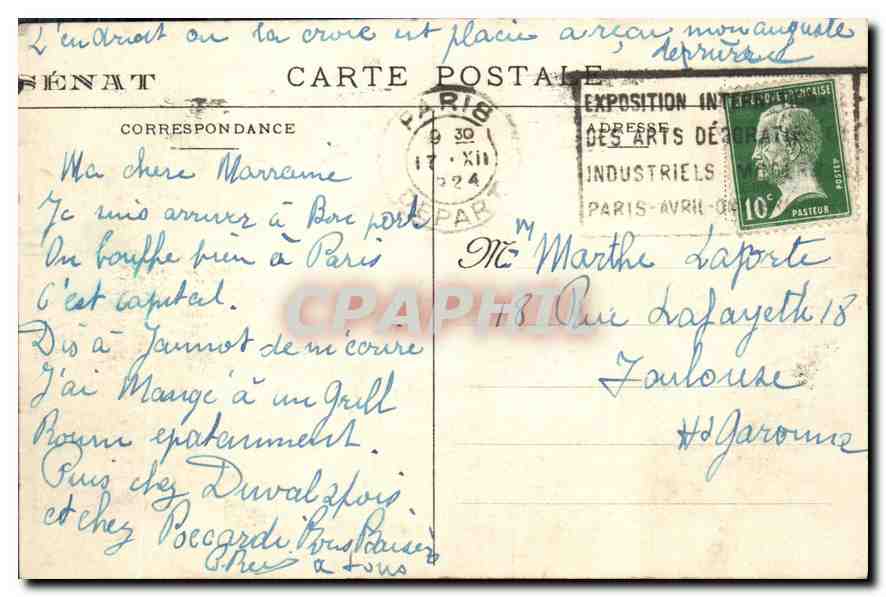 L'endroit ou la croix est placée a reçu mon auguste
derrière
SÉNAT
CARTE POSTALE
CORRESPONDANCE
ADRESSE
PARIS
9 30
17 · XII
24
DEPART
EXPOSITION INTER
DES ARTS DÉCORATIFS
INDUSTRIELS
PARIS-AVRIL-O
FRANÇAISE
POSTES
10c
PASTEUR
Ma chere Marraine
Je suis arriver à Bon port
On bouffe bien à Paris
C'est capital.
Dis à Jannot de m'ecrire
J'ai Mangé à un Grill
Room epatamment.
Puis chez Duval 2 fois
et chez Poccardi. Bons Baisers
à tous
Mm Marthe Laporte
18 Rue Lafayeth 18
Toulouse
Hte Garonne
CPAPHIL